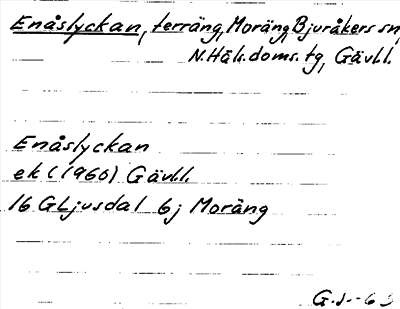 Enåslyckan, terräng, Moräng, Bjuråkers sn,
N.Häls.doms.tg, Gävl.l.
Enåslyckan
ek (1960) Gävl.l.
16 G Ljusdal 6j Moräng
G.J.-63